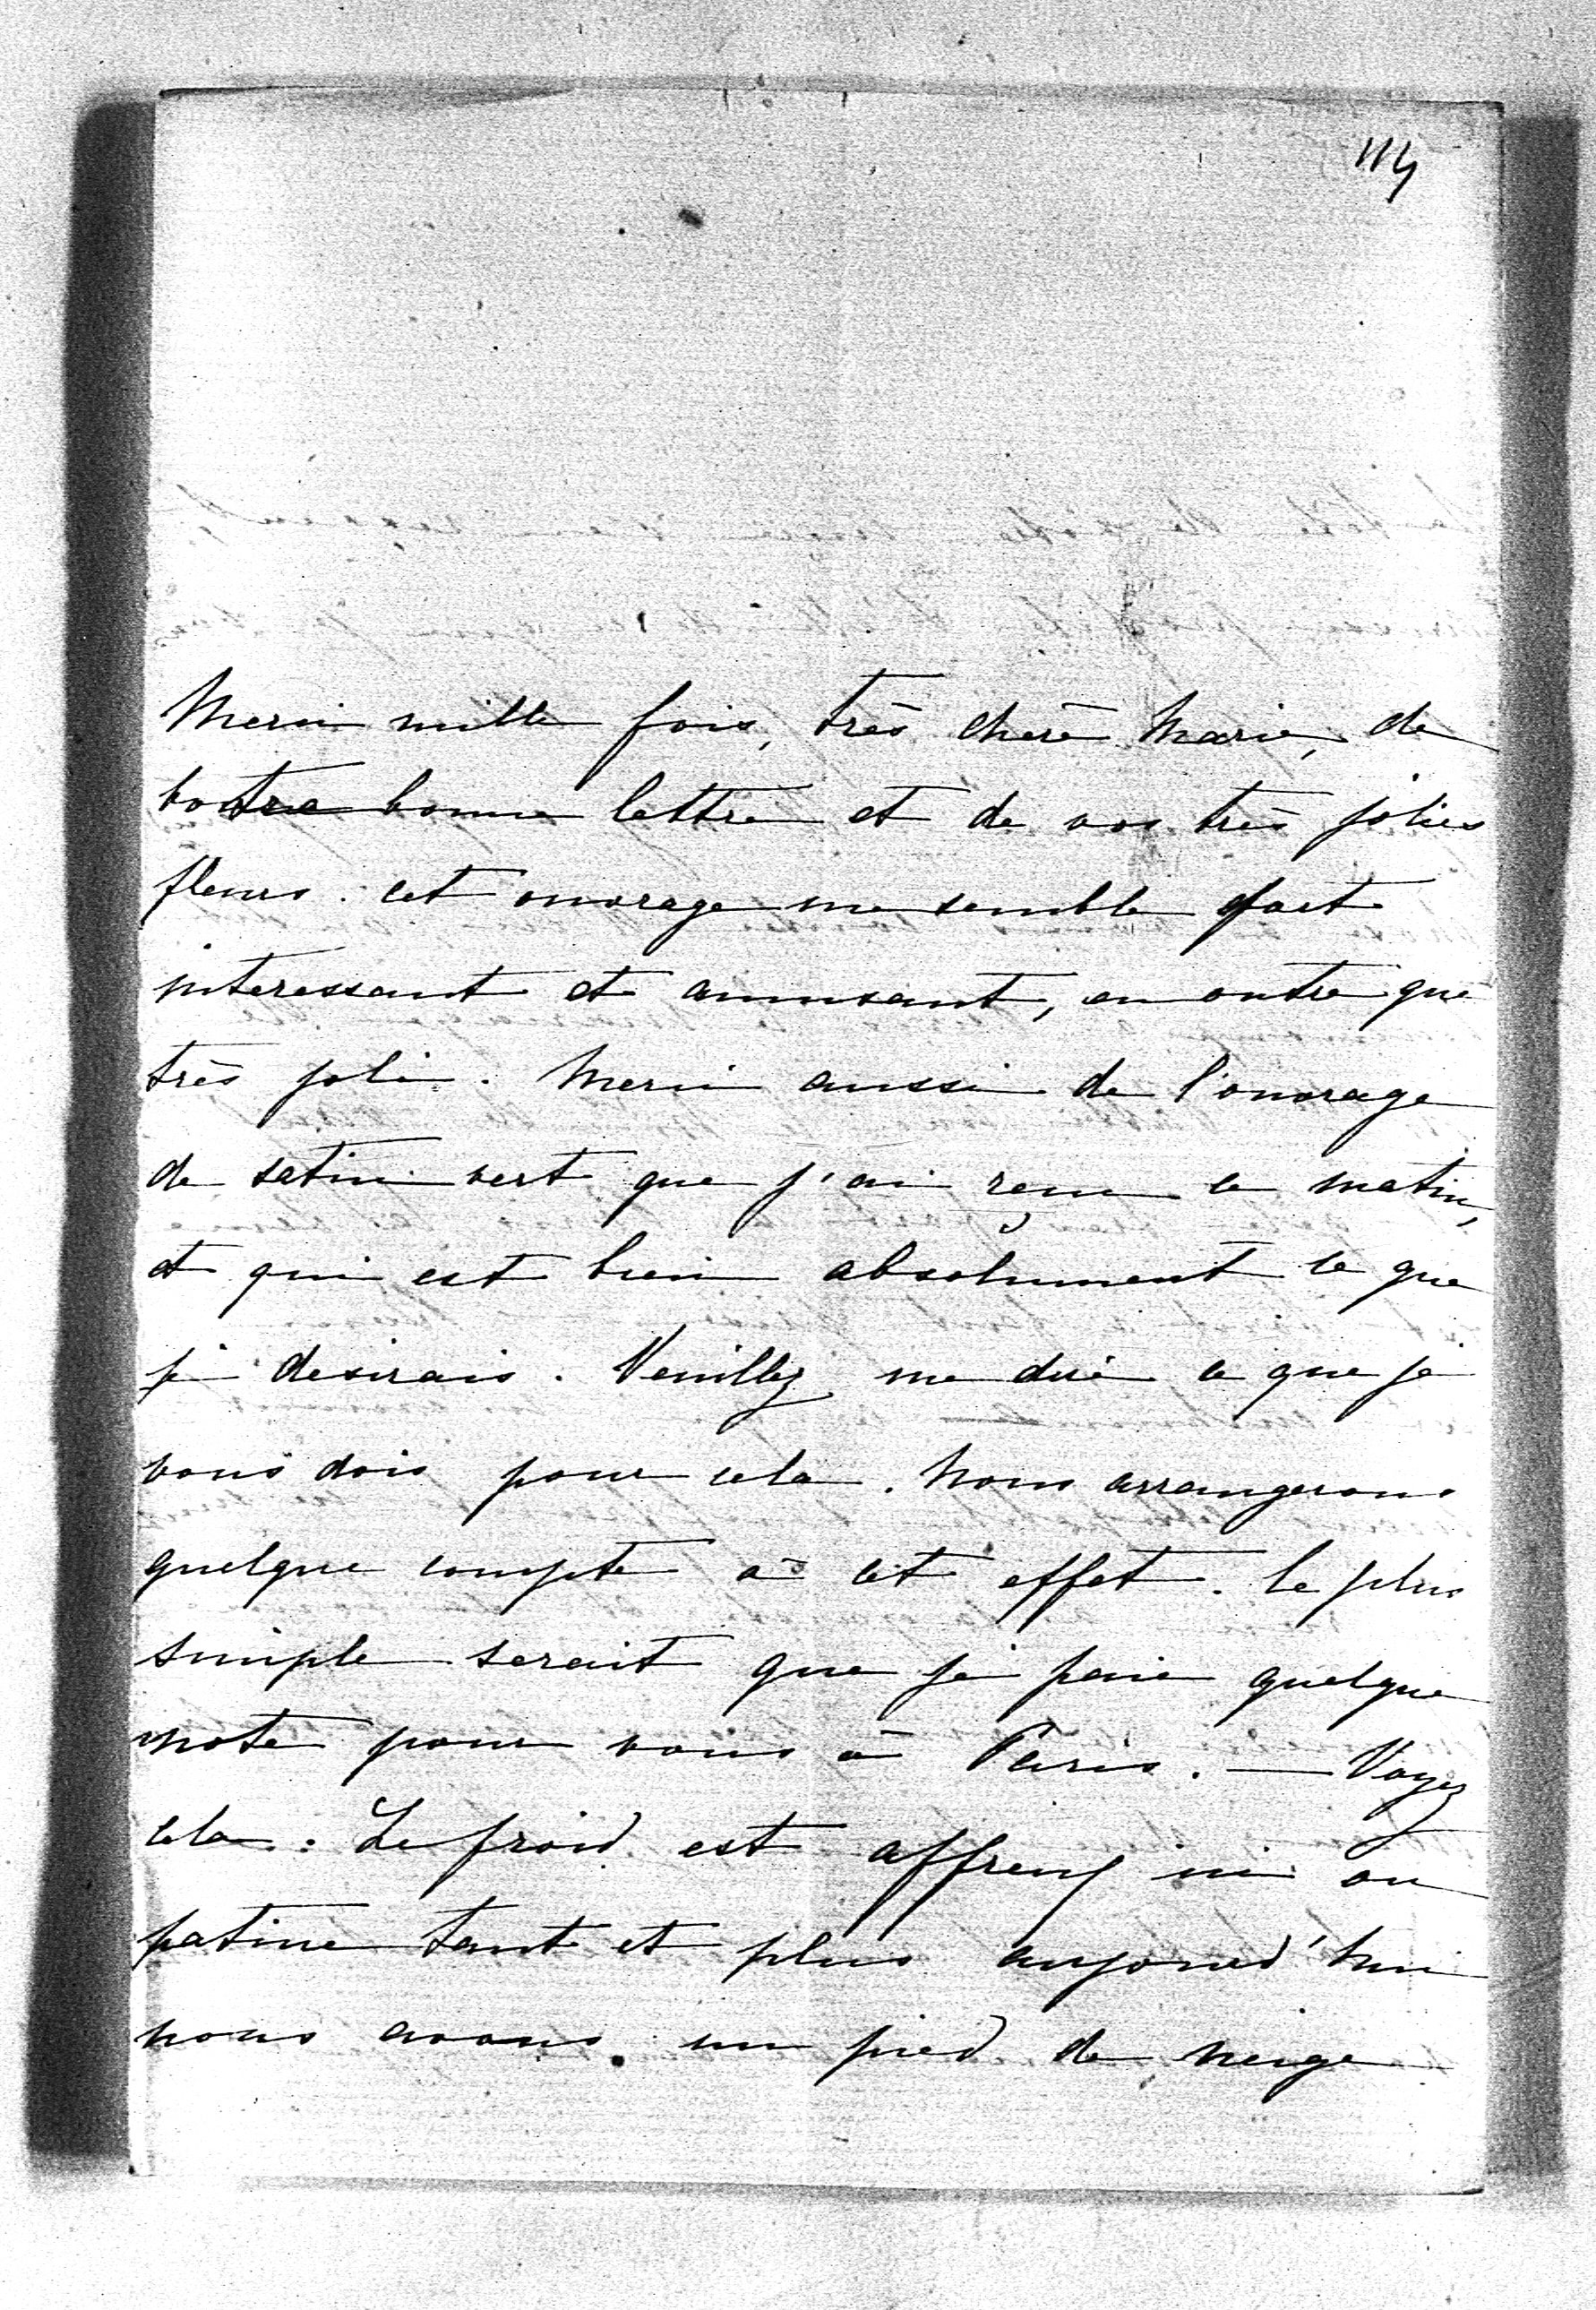 114
Merci mille fois, très chère Marie, de
votre bonne lettre et de vos très jolies
fleurs. cet ouvrage me semble fort
interessant et amusant, en outre que
très joli. Merci aussi de l'ouvrage
de satin vert que j'ai reçu ce matin,
et qui est bien absolument ce que
je desirais. Veuillez me dire ce que je
vous dois pour cela. Nous arrangerons
quelque compte à cet effet. le plus
simple serait que je paie quelque
note pour vous à Paris. — Voyez
cela. Le froid est affreux ici on
patine tant et plus aujourd'hui
nous avons un pied de neige